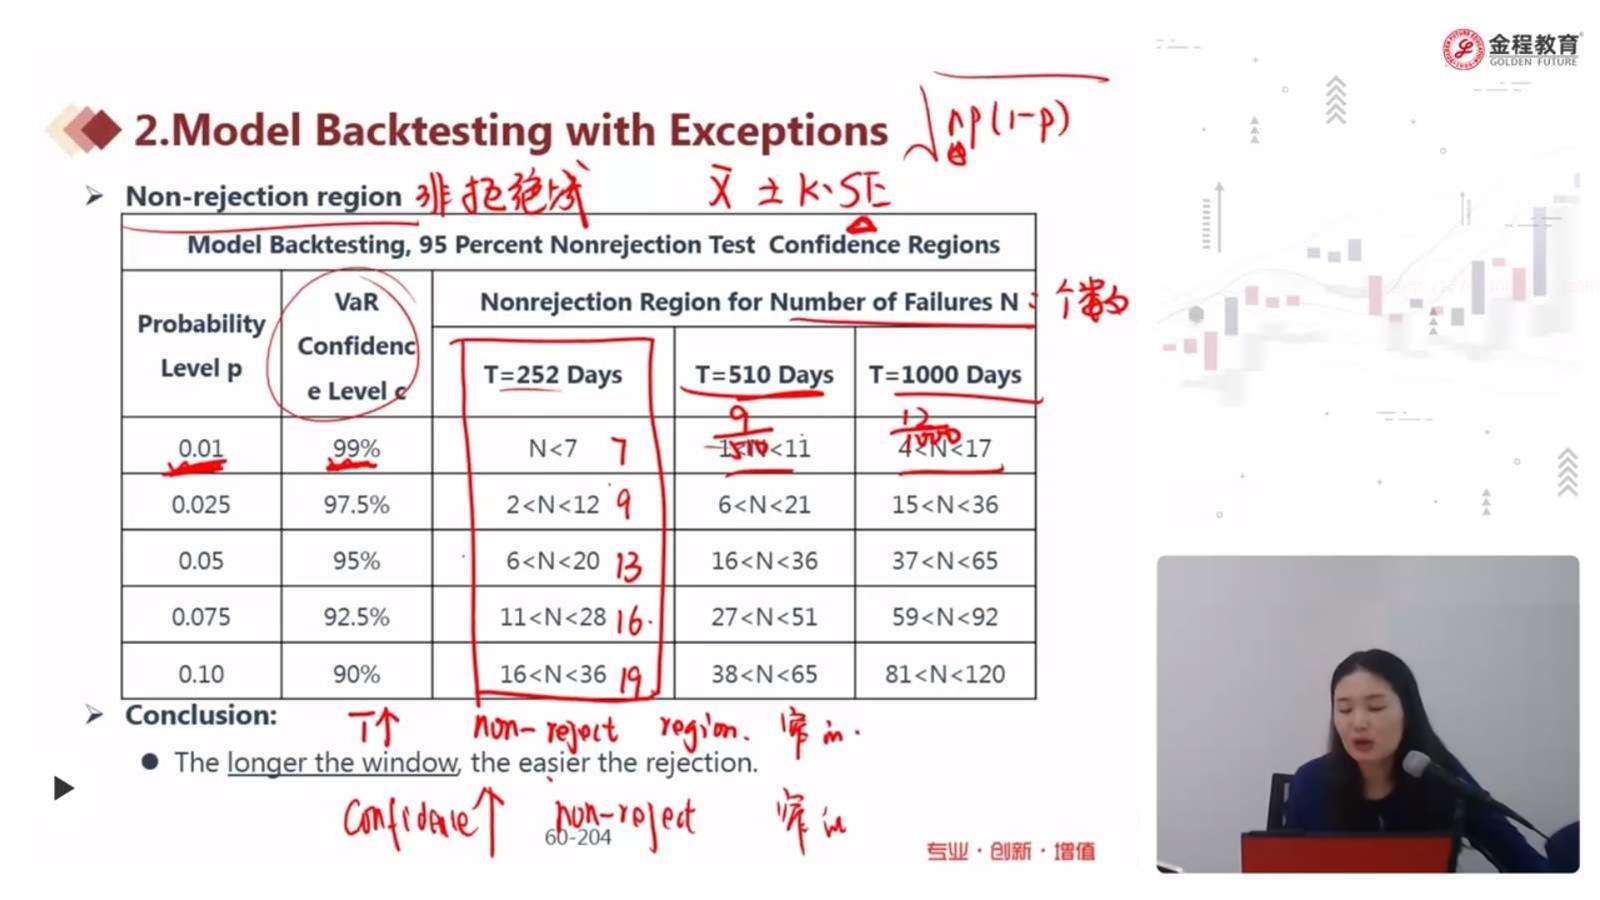 金程教育
GOLDEN FUTURE
2.Model Backtesting with Exceptions
√np(1-p)
Non-rejection region 非拒绝域 X̄ ± K·SE
Model Backtesting, 95 Percent Nonrejection Test Confidence Regions
Probability Level p
VaR Confidence Level c
Nonrejection Region for Number of Failures N : 个数
T=252 Days
T=510 Days
T=1000 Days
9/510
12/1000
0.01 99% N<7 7 1<N<11 4<N<17
0.025 97.5% 2<N<12 9 6<N<21 15<N<36
0.05 95% 6<N<20 13 16<N<36 37<N<65
0.075 92.5% 11<N<28 16 27<N<51 59<N<92
0.10 90% 16<N<36 19 38<N<65 81<N<120
Conclusion:
T↑ non-reject region. 窄
The longer the window, the easier the rejection.
Confidence↑ non-reject 窄
60-204
专业·创新·增值